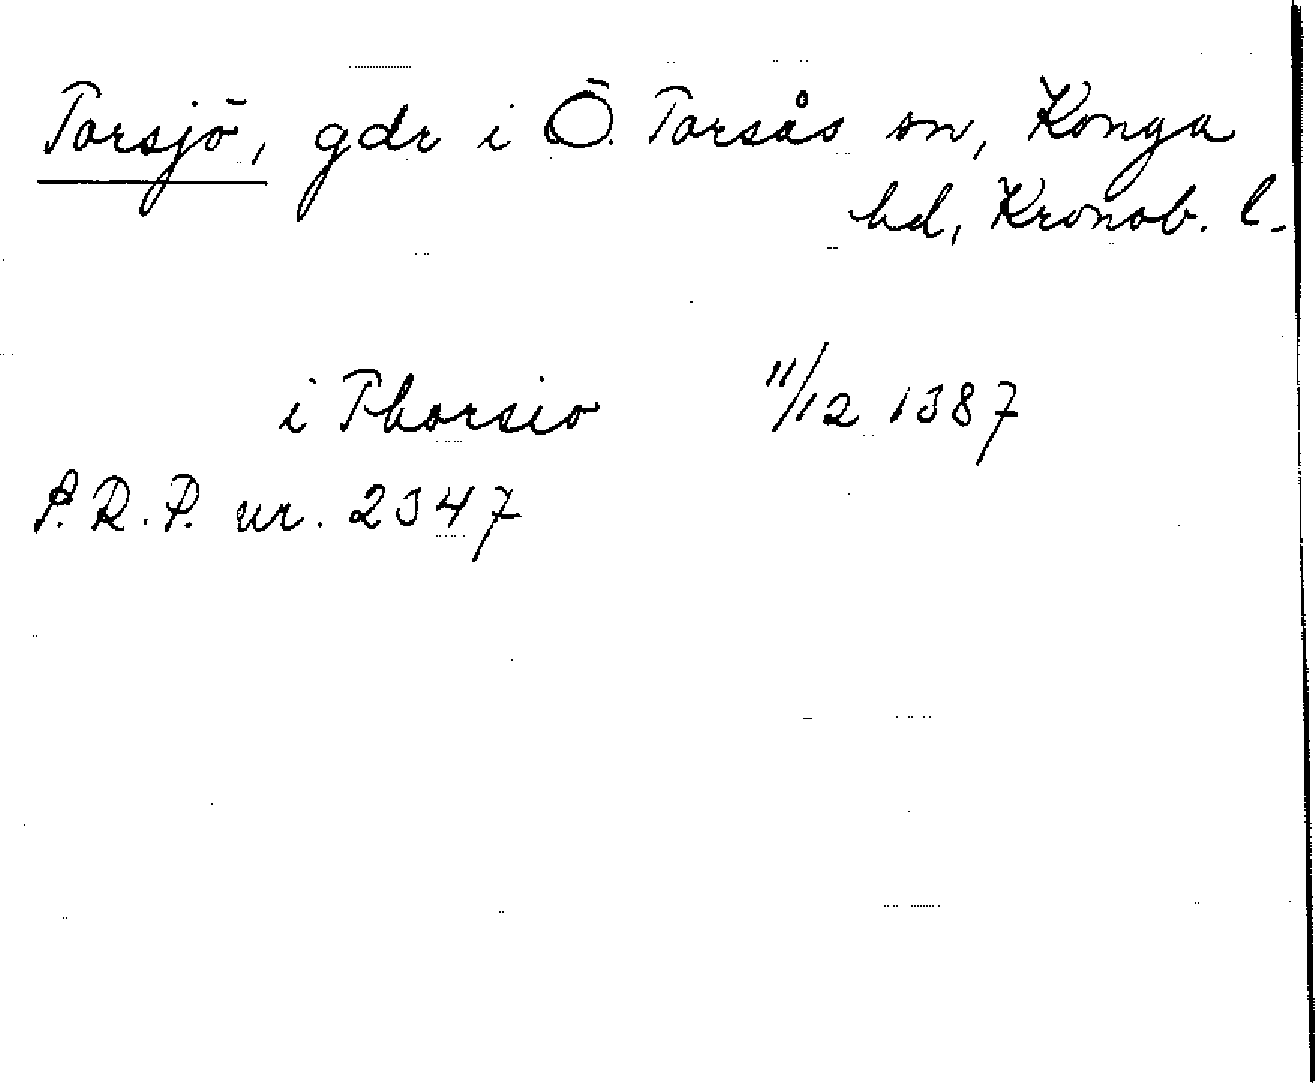 Torsjö, gdr i Ö. Torsås sn, Konga
hd, Kronob. l.
i Thorsio 11/12 1387
P.R.P. nr. 2347